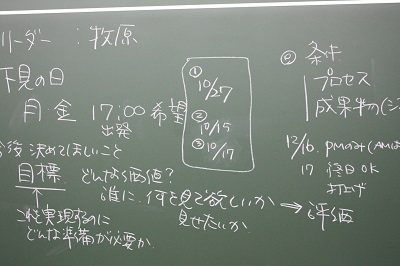 リーダー : 牧原
下見の日
月 金 17:00 希望
出発
① 10/27
② 10/15
③ 10/17
今後 決めてほしいこと
目標 どんな価値?
誰に、何を見て欲しいか
見せたいか
⇒ 評価
これを実現するのに
どんな準備が必要か.
② 条件
プロセス
成果物(シ
12/16. pmのみ(AMは
17 終日OK